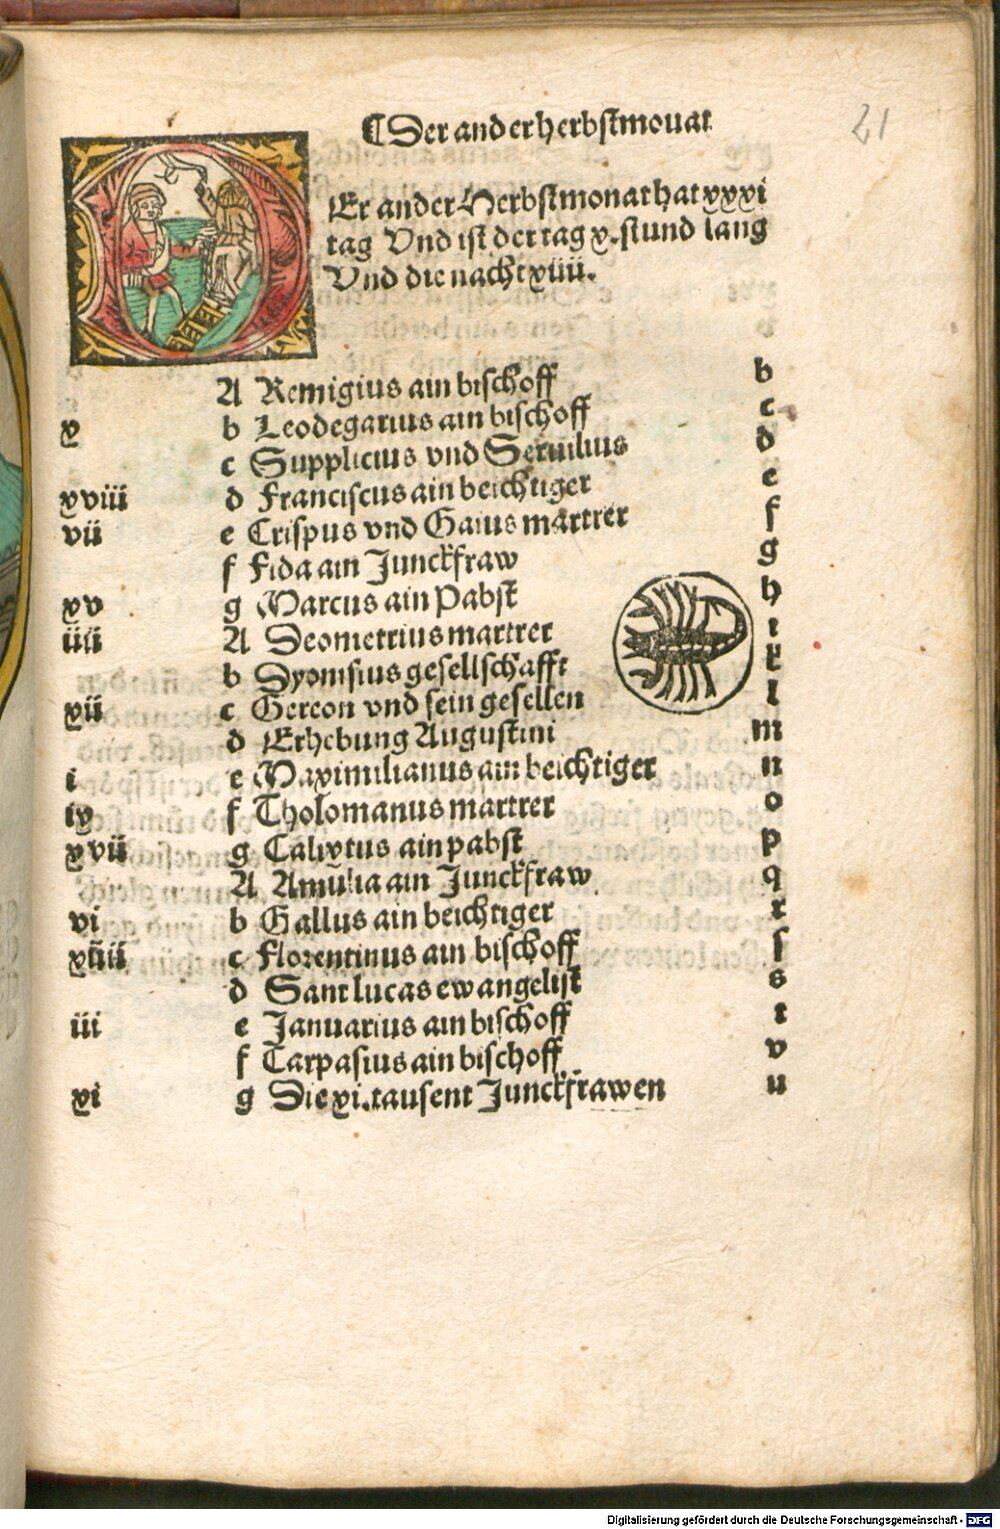 21
¶ Der ander herbstmonat
Er ander Herbstmonat hat xxxi
tag Vnd ist der tag x. stund lang
Vnd die nacht xiiii.
A Remigius ain bischoff b
x b Leodegarius ain bischoff c
c Supplicius vnd Seruilius d
xviii d Franciscus ain beichtiger e
vii e Crispus vnd Gaius martrer f
f Fida ain Junckfraw g
xv g Marcus ain Pabst h
iiii A Deometrius martrer i
b Dyonisius gesellschafft k
xii c Gereon vnd sein gesellen l
d Erhebung Augustini m
i e Maximilianus ain beichtiger n
ix f Tholomanus martrer o
xvii g Calixtus ain pabst p
A Amulia ain Junckfraw q
vi b Gallus ain beichtiger r
xiiii c Florentinus ain bischoff ſ
d Sant lucas ewangelist s
iii e Januarius ain bischoff t
f Carpasius ain bischoff v
xi g Die xi. tausent Junckfrawen u
Digitalisierung gefördert durch die Deutsche Forschungsgemeinschaft - DFG